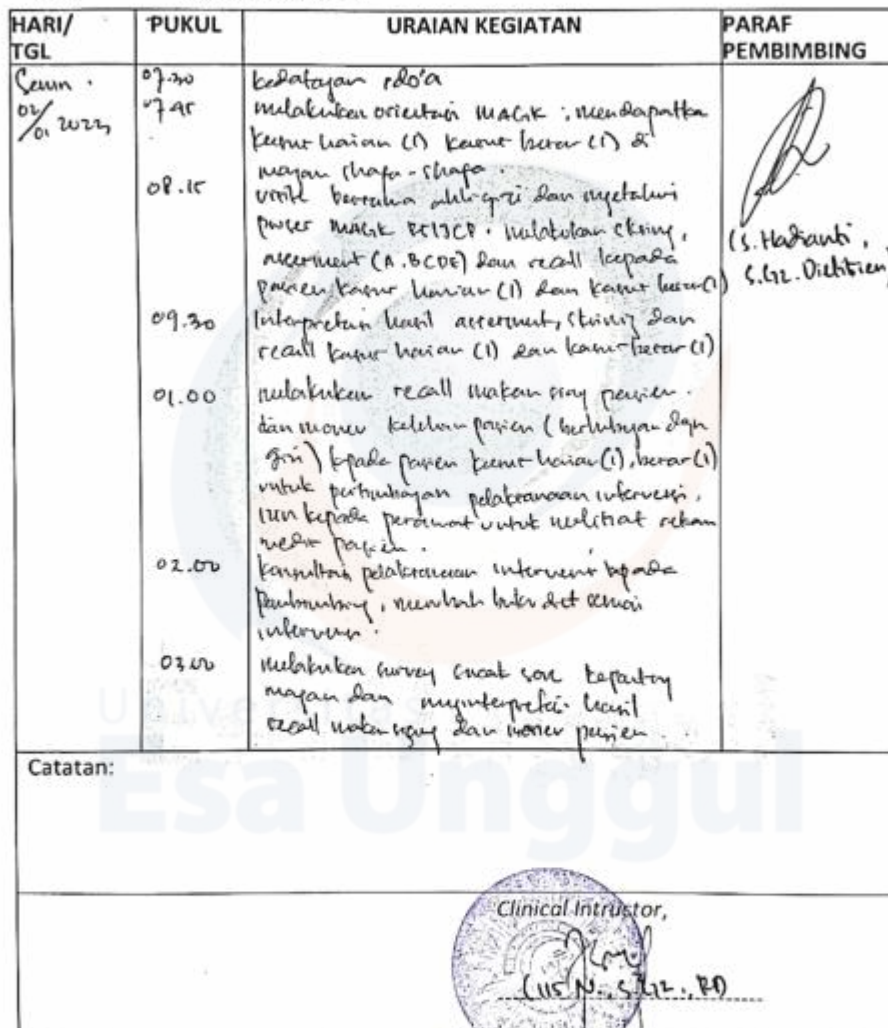 HARI/ TGL PUKUL URAIAN KEGIATAN PARAF PEMBIMBING
Senin. 07.30 kedatangan &do'a
02/01 2023 07.45 melakukan orientasi MAGK ; mendapatka
kasus harian (1) kasus besar (1) di
ruangan shafa-shafa.
08.15 visite bersama ahli gizi dan mgetahui
proses MAGK melakukan skring,
assesment (A.BCDE) dan recall kepada
pasien kasus harian (1) dan kasus besar (1)
(S. Hadianti,
S.Gz. Dietitien)
09.30 Interpretasi hasil assesment, skrining dan
recall kasus harian (1) dan kasus besar (1)
01.00 melakukan recall makan siang pasien.
dan monev keluhan pasien (berhubungan dgn
gizi) kpada pasien kasus harian (1), besar (1)
untuk pelaksanaan intervensi.
izin kepada perawat untuk melihat rekam
medis pasien.
02.00 konsultasi pelaksanaan intervensi kepada
pembimbing, merubah buku diet sesuai
intervensi.
03.00 melakukan survey snack sore
dan mginterpretasi hasil
recall makan siang dan monev pasien.
Universitas
Esa Unggul
Catatan:
Clinical Intructor,
S.Gz., RD